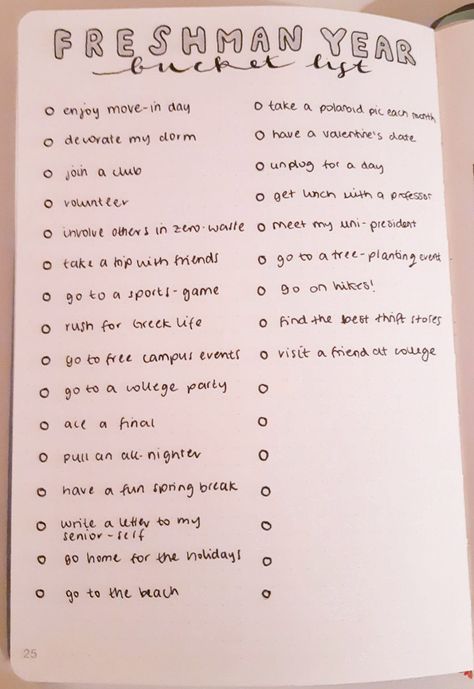 FRESHMAN YEAR
bucket list
enjoy move-in day
decorate my dorm
join a club
volunteer
involve others in zero-waste
take a trip with friends
go to a sports-game
rush for Greek life
go to free campus events
go to a college party
ace a final
pull an all-nighter
have a fun spring break
write a letter to my
senior-self
go home for the holidays
go to the beach
take a polaroid pic each month
have a valentine's date
unplug for a day
get lunch with a professor
meet my uni-president
go to a tree-planting event
go on hikes!
find the best thrift stores
visit a friend at college
25